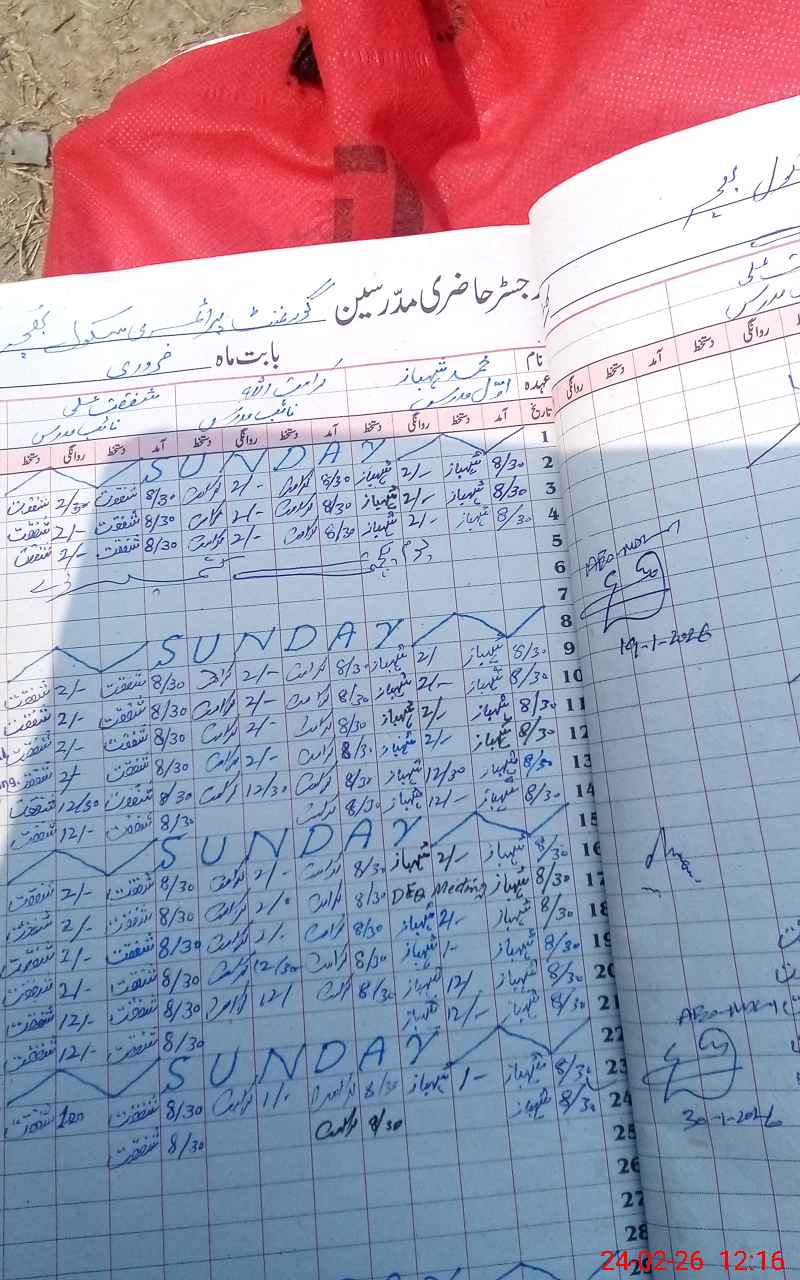 رجسٹر حاضری مدرّسین گورنمنٹ پرائمری سکول
بابت ماہ فروری
نام محمد شہباز کرامت اللہ شفقت علی
عہدہ اوّل مدرس نائب مدرس نائب مدرس
تاریخ آمد دستخط روانگی دستخط آمد دستخط روانگی دستخط آمد دستخط روانگی دستخط
1 SUNDAY
2 8/30 شہباز 2/- شہباز 8/30 کرامت 2/- کرامت 8/30 شفقت 2/30 شفقت
3 8/30 شہباز 2/- شہباز 8/30 کرامت 2/- کرامت 8/30 شفقت 2/- شفقت
4 8/30 شہباز 2/- شہباز 8/30 کرامت 2/- کرامت 8/30 شفقت 2/- شفقت
5
6
7
8 SUNDAY
9 8/30 شہباز 2/ شہباز 8/30 کرامت 2/- کرامت 8/30 شفقت 2/- شفقت
10 8/30 شہباز 2/- شہباز 8/30 کرامت 2/- کرامت 8/30 شفقت 2/- شفقت
11 8/30 شہباز 2/- شہباز 8/30 کرامت 2/- کرامت 8/30 شفقت 2/- شفقت
12 8/30 شہباز 2/- شہباز 8/30 کرامت 2/- کرامت 8/30 شفقت 2/- شفقت
13 8/30 شہباز 12/30 شہباز 8/30 کرامت 12/30 کرامت 8/30 شفقت 12/30 شفقت
14 8/30 شہباز 12/- شہباز 8/30 کرامت 8/30 شفقت 12/- شفقت
15 SUNDAY
16 8/30 شہباز 2/- شہباز 8/30 کرامت 2/- کرامت 8/30 شفقت 2/- شفقت
17 8/30 شہباز DEO Meeting 8/30 کرامت 2/0 کرامت 8/30 شفقت 2/- شفقت
18 8/30 شہباز 2/- شہباز 8/30 کرامت 2/- کرامت 8/30 شفقت 2/- شفقت
19 8/30 شہباز 1/- شہباز 8/30 کرامت 12/30 کرامت 8/30 شفقت 2/- شفقت
20 8/30 شہباز 12/ شہباز 8/30 کرامت 12/ کرامت 8/30 شفقت 12/- شفقت
21 8/30 شہباز 12/- شہباز 8/30 شفقت 12/- شفقت
22 SUNDAY
23 8/30 شہباز 1/- شہباز 8/30 کرامت 1/- کرامت 8/30 شفقت 100 شفقت
24 8/30 شہباز 8/30 کرامت 8/30 شفقت
25
26
27
28
آمد دستخط روانگی
19-1-2026
30-1-2026
24-02-26 12:16